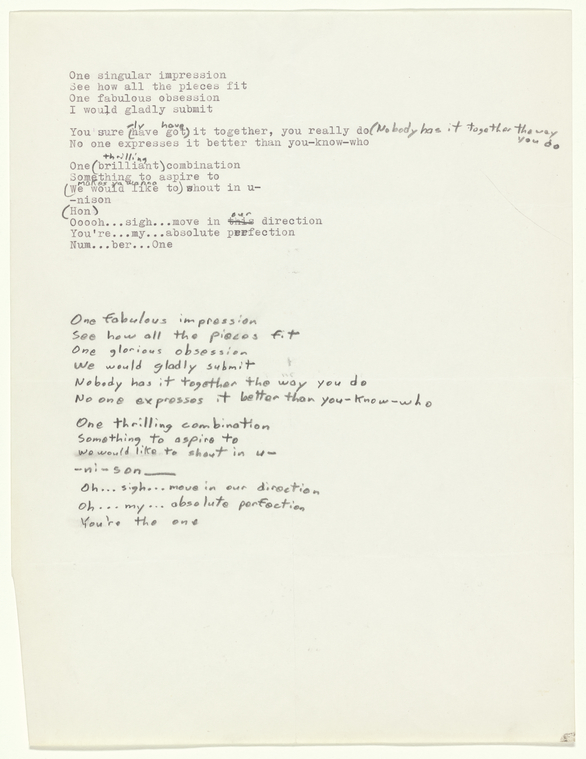 One singular impression
See how all the pieces fit
One fabulous obsession
I would gladly submit
ly have
You sure (have got) it together, you really do (Nobody has it together the way you do
No one expresses it better than you-know-who
thrilling
One (brilliant) combination
Something to aspire to
makes ya wanna
(We would like to) shout in u-
-nison
(Hon)
our
Ooooh...sigh...move in this direction
You're...my...absolute perfection
Num...ber...One
One fabulous impression
See how all the pieces fit
One glorious obsession
We would gladly submit
Nobody has it together the way you do
No one expresses it better than you-know-who
One thrilling combination
Something to aspire to
We would like to shout in u-
-ni-son
Oh... sigh... move in our direction
Oh... my... absolute perfection
You're the one